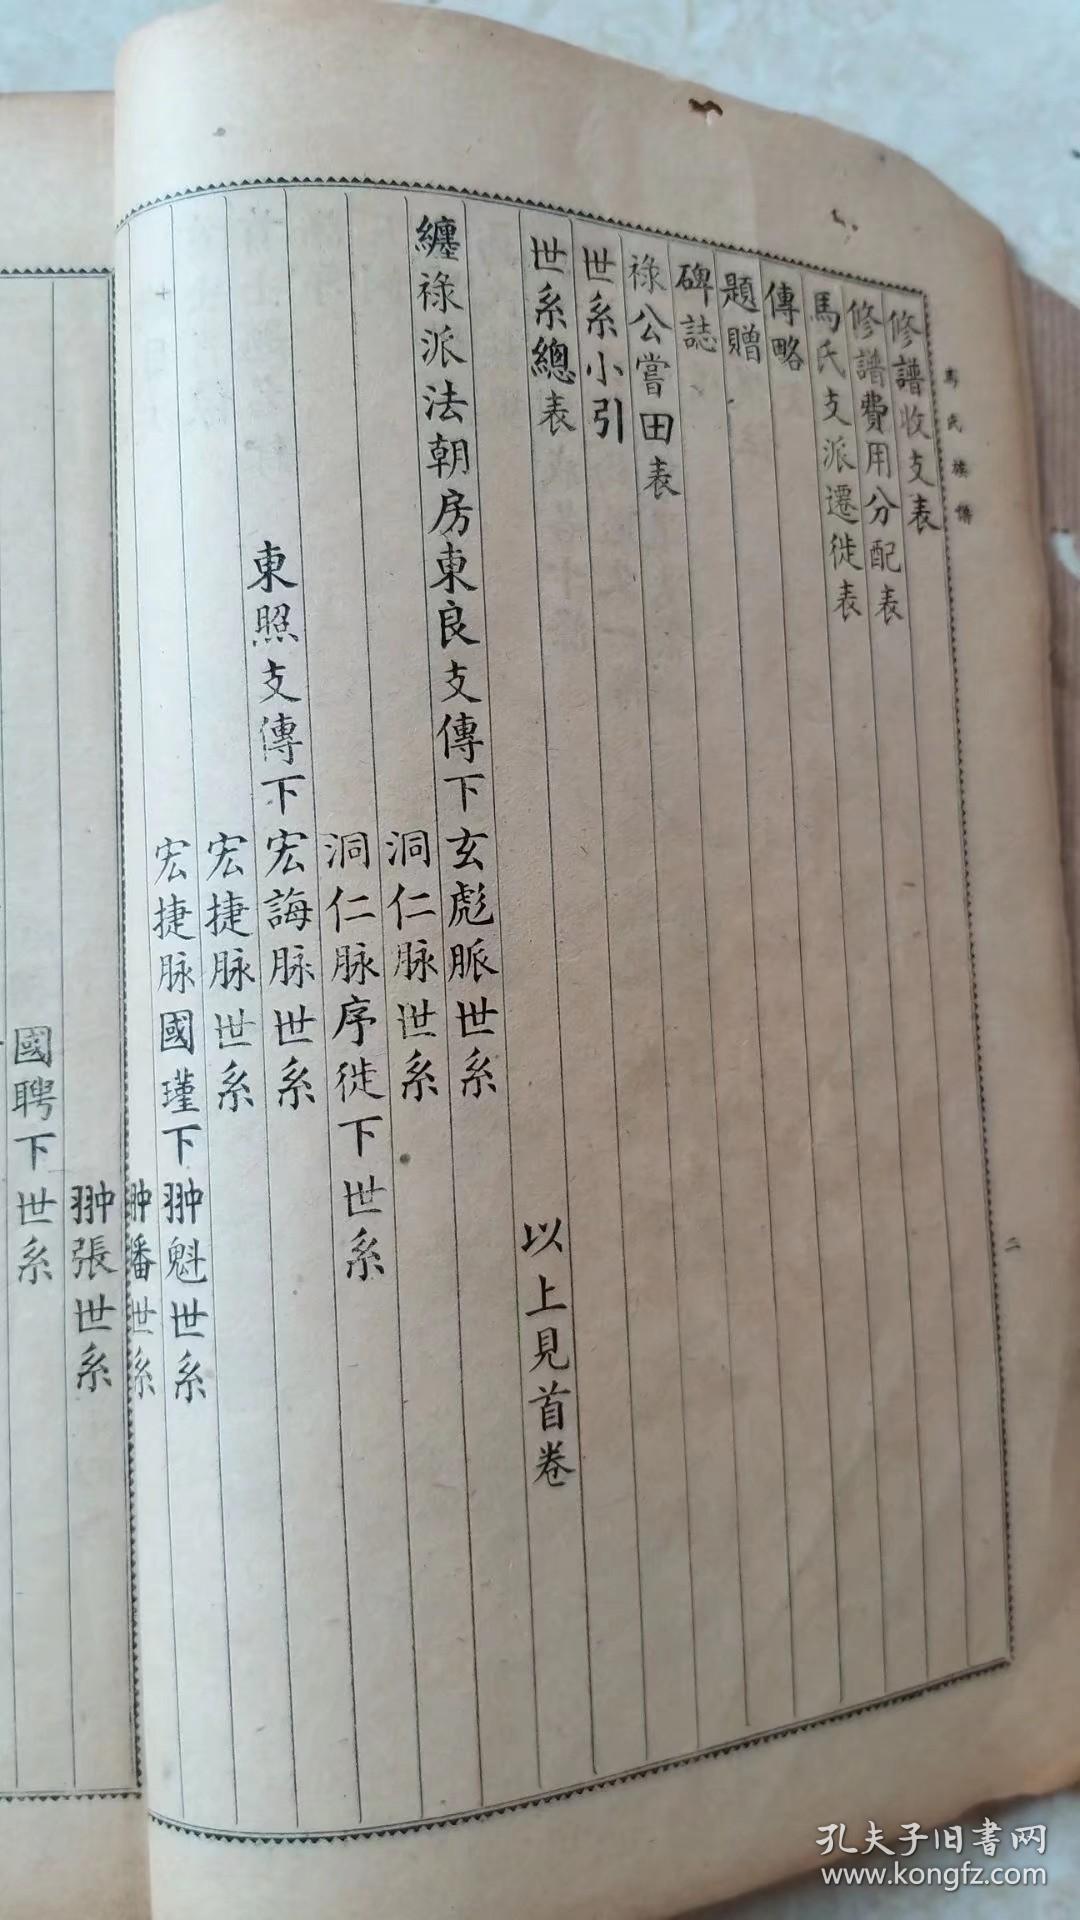 馬氏族譜
二
修譜收支表
修譜費用分配表
馬氏支派遷徙表
傳略
題贈
碑誌
祿公嘗田表
世系小引
世系總表
以上見首卷
纏祿派法朝房東良支傳下玄彪脈世系
洞仁脉世系
洞仁脉序徙下世系
東照支傳下宏誨脉世系
宏捷脉世系
宏捷脉國瑾下翀魁世系
翀播世系
翀張世系
國聘下世系
孔夫子旧書网
www.kongfz.com